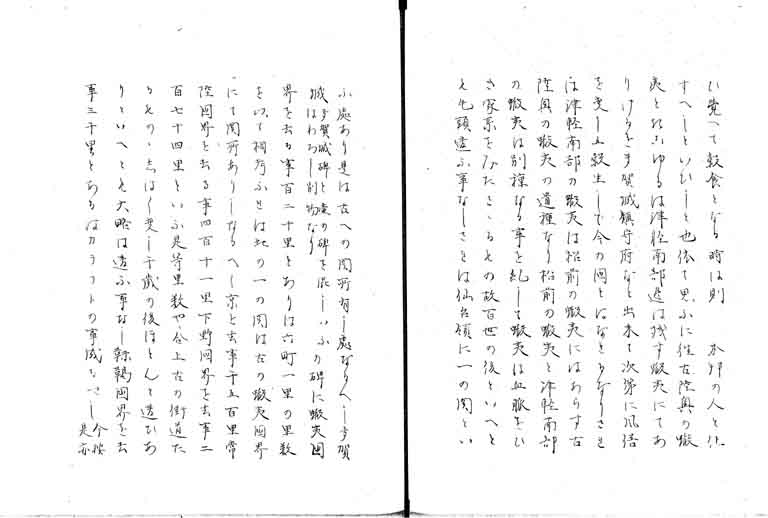 い覚へて穀食となる時は則　本邦の人と化
すへしといひしと也依て思ふに往古陸奥の蝦
夷といふは津軽南部辺は残す蝦夷にてあ
りけるを多賀城鎮守府など出来て次第に風俗
を変し五穀生して今の国とはなきるなりさも
は津軽南部の蝦夷は松前の蝦夷にはあらす古
陸奥の蝦夷の遺種なり松前の蝦夷と津軽南部
の蝦夷は別種なる事を乱して蝦夷は血脈をひ
き家系をみたさゝるもの故百世の後といへと
も先頭違ふ事なしさては仙台領に一の関とい
ふ處あり是は古への関所有し處なりへし多賀
城多賀城碑と壷の碑を混しいふの碑に蝦夷国
城はわろし別物なり
界を去る事百二十里とありは六町一里の里数
を以て相考ふれは此の一の関は古の蝦夷国界
にて関所ありしなるへし京を去事千五百里常
陸国界を去る事四百十一里下野国界を去事二
百七十四里といふ是等里数や合上古の街道た
るもの
りといへとも大略は違ふ事なし靺鞨国界を去
事三千里とあるはカラフトの事成るへし今按
是亦